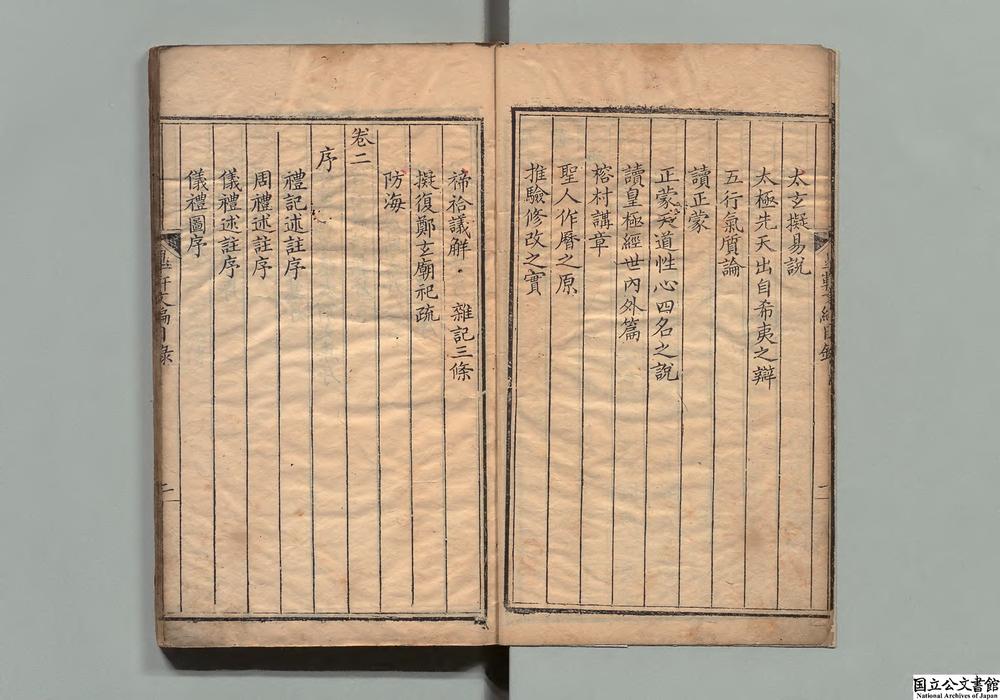 太玄擬易說
太極先天出自希夷之辯
五行氣质論
讀正蒙
正蒙天道性心四名之說
讀皇極經世內外篇
榕村講章
聖人作曆之原
推驗修改之實
禘祫議解 雜記三條
擬復鄭玄廟祀疏
防海
卷二
序
禮記述註序
周禮述註序
儀禮述註序
儀禮圖序
目錄
二
国立公文書館
National Archives of Japan